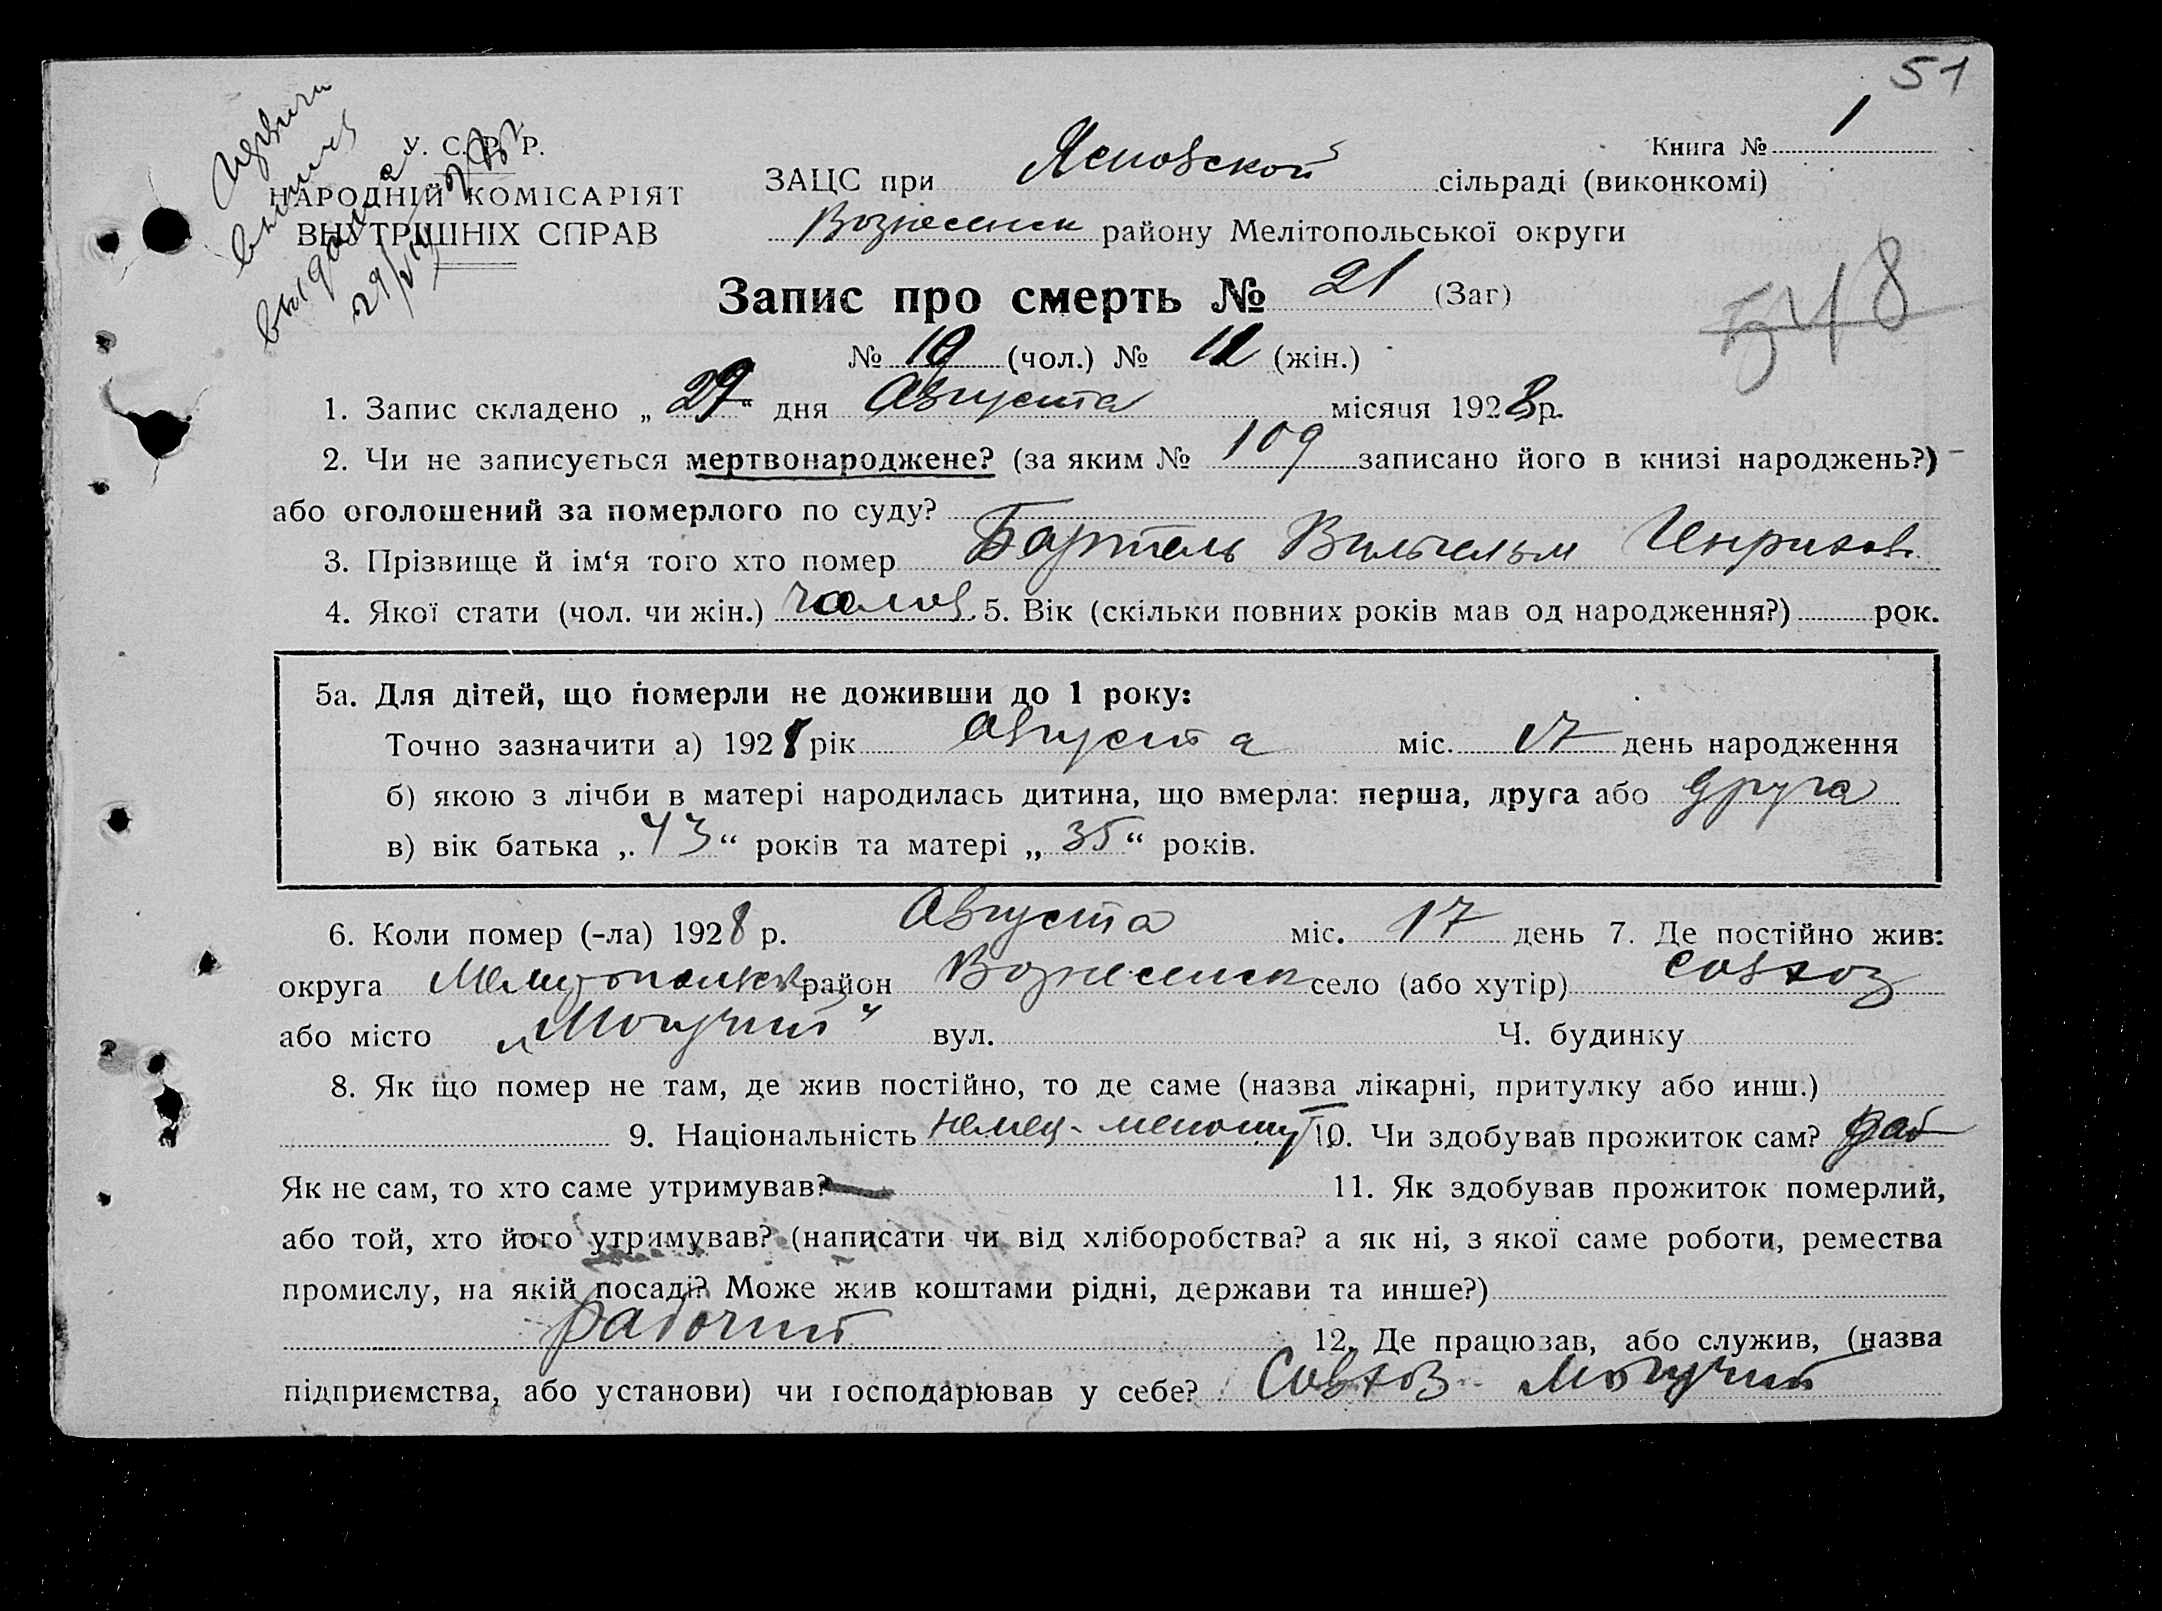 51
У. С. Р. Р.
НАРОДНІЙ КОМІСАРІЯТ
ВНУТРІШНІХ СПРАВ
Книга № 1
ЗАЦС при Ясновской сільраді (виконкомі)
Вознесенск району Мелітопольської округи
Запис про смерть № 21 (Заг)
548
№ 10 (чол.) № 11 (жін.)
1. Запис складено „ 29 “ дня Августа місяця 1928 р.
2. Чи не записується мертвонароджене? (за яким № 109 записано його в книзі народжень?)
або оголошений за померлого по суду?
3. Прізвище й ім‘я того хто помер Бартель Вильгельм Генрихов.
4. Якої стати (чол. чи жін.) чолов. 5. Вік (скільки повних років мав од народження?) рок.
5а. Для дітей, що померли не доживши до 1 року:
Точно зазначити а) 1928 рік Августа міс. 17 день народження
б) якою з лічби в матері народилась дитина, що вмерла: перша, друга або друга
в) вік батька „ 43 “ років та матері „ 35 “ років.
6. Коли помер (-ла) 1928 р. Августа міс. 17 день 7. Де постійно жив:
округа Мелитопольск район Вознесенск село (або хутір) совхоз
або місто „Могучий“ вул. Ч. будинку
8. Як що помер не там, де жив постійно, то де саме (назва лікарні, притулку або инш.)
9. Національність немец-меношт 10. Чи здобував прожиток сам? раб
Як не сам, то хто саме утримував? —
11. Як здобував прожиток померлий,
або той, хто його утримував? (написати чи від хліборобства? а як ні, з якої саме роботи, ремества
промислу, на якій посаді? Може жив коштами рідні, держави та инше?)
рабочий 12. Де працював, або служив, (назва
підприємства, або установи) чи господарював у себе? Совхоз Могучий